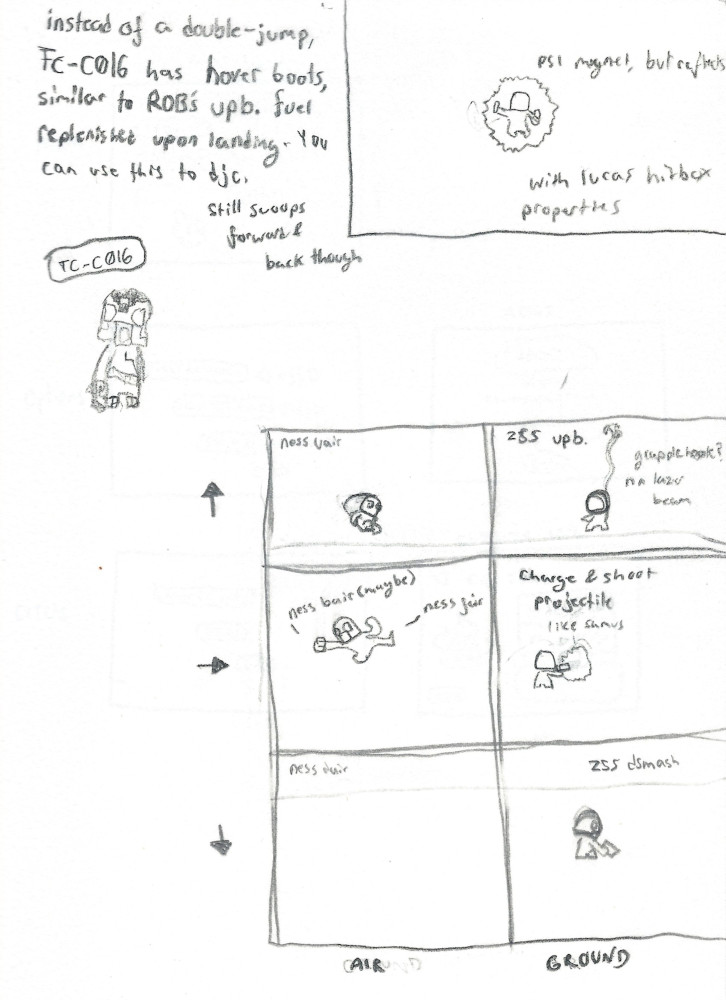 instead of a double-jump,
TC-C016 has hover boots,
similar to ROB's upb. fuel
replenished upon landing. You
can use this to djc.
still swoops
forward &
back though
TC-C016
psi magnet, but reflects
with lucas hitbox
properties
ness uair
255 upb.
grapple hook?
no lazer
beam
ness bair (maybe)
ness fair
Charge & shoot
projectile
like samus
ness dair
255 dsmash
AIR
GROUND